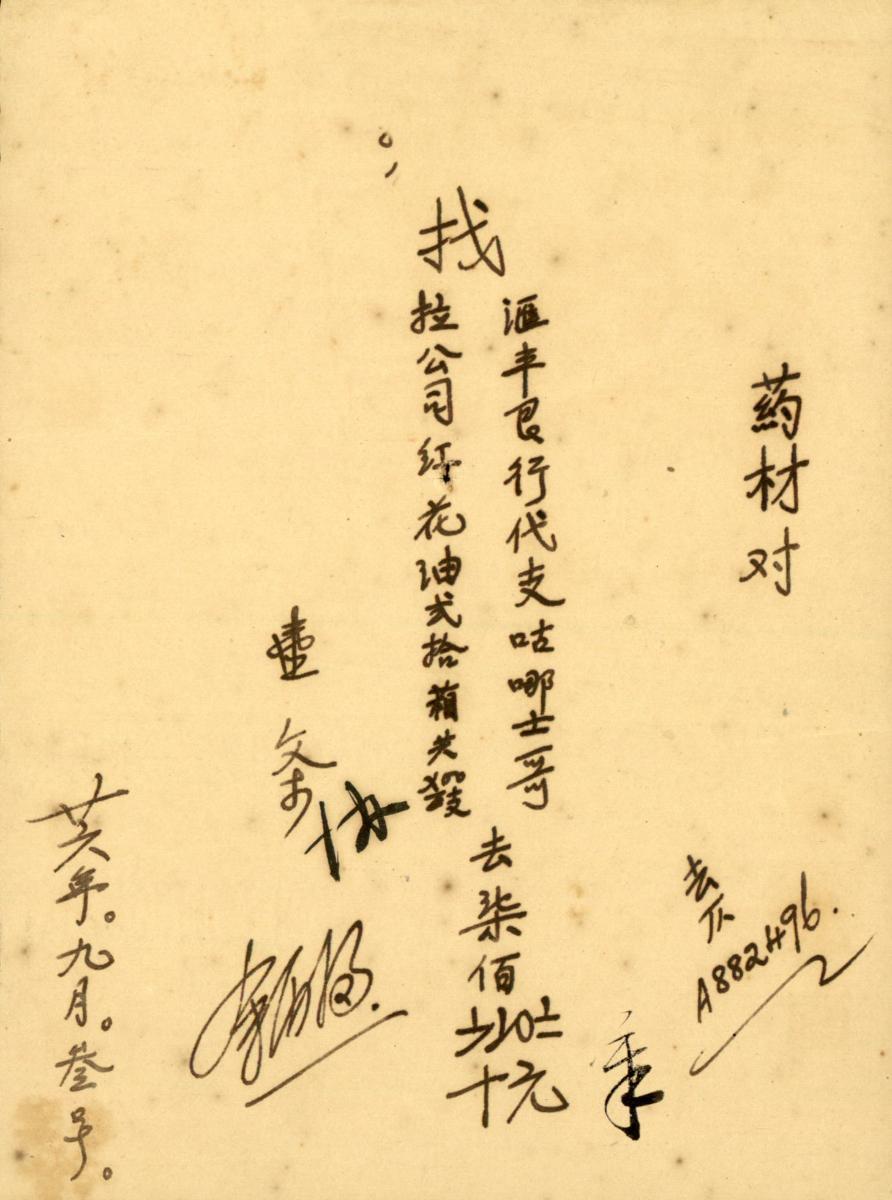 药材对
找
滙丰艮行代支咕哪士哥
拉公司红花油弍拾箱共發
去柒佰
十元
去仄
A882496.
壹
廿六年。九月。叁号。